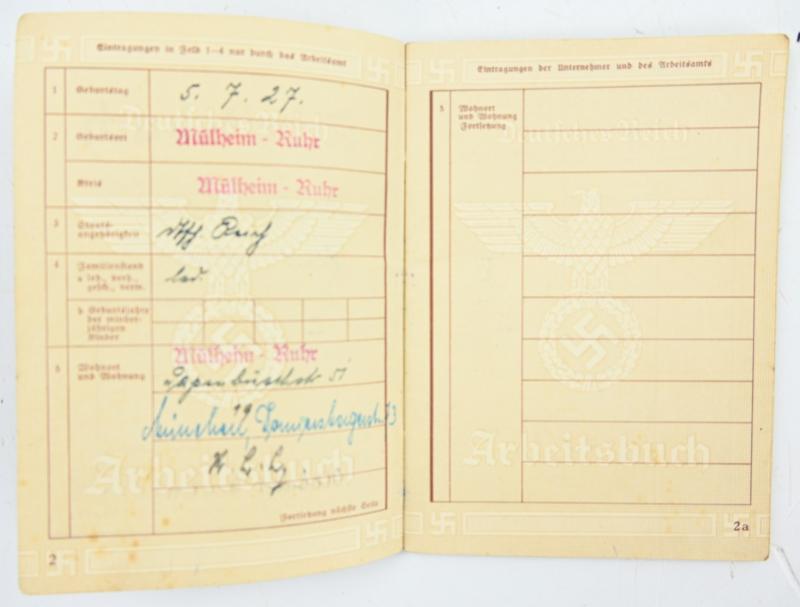 Eintragungen in Feld 1–4 nur durch das Arbeitsamt
1 Geburtstag 5. 7. 27.
2 Geburtsort Mülheim - Ruhr
Kreis Mülheim - Ruhr
3 Staats-
angehörigkeit dtsch. Reich
4 Familienstand
a led., verh.,
gesch., verw. led.
b. Geburtsjahre
der minder-
jährigen
Kinder
5 Wohnort
und Wohnung
Mülheim - Ruhr
München,
Fortsetzung nächste Seite
Deutsches Reich
Arbeitsbuch
2
Eintragungen der Unternehmer und des Arbeitsamts
5. Wohnort
und Wohnung
Fortsetzung
Deutsches Reich
Arbeitsbuch
2a